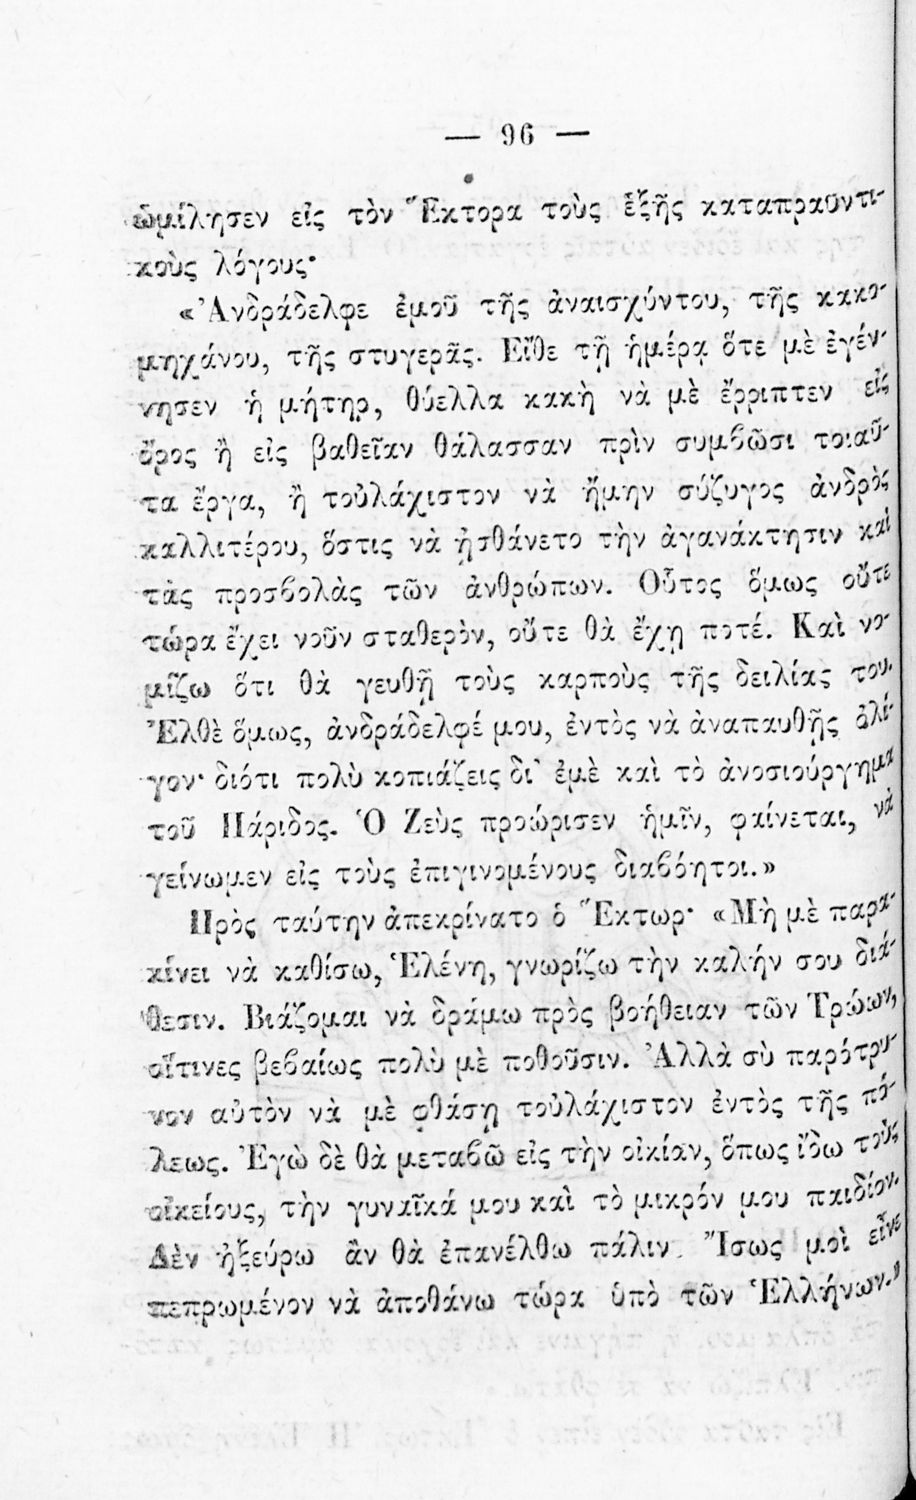 — 96 —
ὡμίλησεν εἰς τὸν Ἕκτορα τοὺς ἑξῆς καταπραϋντι-
κοὺς λόγους·
«Ἀνδράδελφε ἐμοῦ τῆς ἀναισχύντου, τῆς κακο-
μηχάνου, τῆς στυγερᾶς. Εἴθε τῇ ἡμέρᾳ ὅτε μὲ ἐγέν-
νησεν ἡ μήτηρ, θύελλα κακὴ νὰ μὲ ἔρριπτεν εἰς
ὄρος ἢ εἰς βαθεῖαν θάλασσαν πρὶν συμβῶσι τοιαῦ-
τα ἔργα, ἢ τοὐλάχιστον νὰ ἤμην σύζυγος ἀνδρὸς
καλλιτέρου, ὅστις νὰ ᾐσθάνετο τὴν ἀγανάκτησιν καὶ
τὰς προσβολὰς τῶν ἀνθρώπων. Οὗτος ὅμως οὔτε
τώρα ἔχει νοῦν σταθερὸν, οὔτε θὰ ἔχῃ ποτέ. Καὶ νο-
μίζω ὅτι θὰ γευθῇ τοὺς καρποὺς τῆς δειλίας του.
Ἐλθὲ ὅμως, ἀνδράδελφέ μου, ἐντὸς νὰ ἀναπαυθῇς ὀλί-
γον· διότι πολὺ κοπιάζεις δι' ἐμὲ καὶ τὸ ἀνοσιούργημα
τοῦ Πάριδος. Ὁ Ζεὺς προώρισεν ἡμῖν, φαίνεται, νὰ
γείνωμεν εἰς τοὺς ἐπιγινομένους διαβόητοι.»
Πρὸς ταύτην ἀπεκρίνατο ὁ Ἕκτωρ· «Μὴ μὲ παρα-
κίνει νὰ καθίσω, Ἑλένη, γνωρίζω τὴν καλήν σου διά-
θεσιν. Βιάζομαι νὰ δράμω πρὸς βοήθειαν τῶν Τρώων,
οἵτινες βεβαίως πολὺ μὲ ποθοῦσιν. Ἀλλὰ σὺ παρότρυ-
νον αὐτὸν νὰ μὲ φθάσῃ τοὐλάχιστον ἐντὸς τῆς πό-
λεως. Ἐγὼ δὲ θὰ μεταβῶ εἰς τὴν οἰκίαν, ὅπως ἴδω τοὺς
οἰκείους, τὴν γυναῖκά μου καὶ τὸ μικρόν μου παιδίον.
Δὲν ἠξεύρω ἂν θὰ ἐπανέλθω πάλιν. Ἴσως μοὶ εἶνε
πεπρωμένον νὰ ἀποθάνω τώρα ὑπὸ τῶν Ἑλλήνων.»